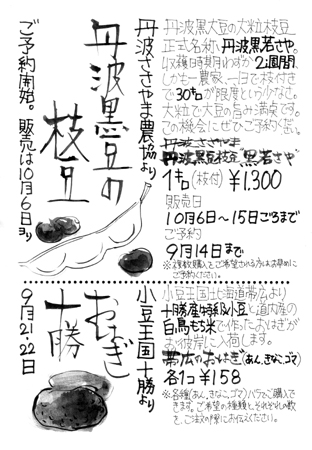 丹波ささやま農協より
丹波黒豆の
枝豆
ご予約開始。販売は10月6日ヨリ
丹波黒大豆の大粒枝豆
正式名称、丹波黒若さや。
収穫時期わずか2週間、
しかも一農家、一日で枝付き
で30キロが限度という少なさ。
大粒で大豆の旨み満点です。
この機会にぜひご予約ください。
丹波ささやま
丹波黒豆枝豆“黒若さや”
1キロ(枝付) ¥1,300
販売日
10月6日〜15日ごろまで
ご予約
9月14日まで
※複数購入をご希望される方はお早めに
ご予約ください。
小豆王国十勝より
おはぎ
十勝
9月21・22日
小豆王国北海道帯広より
十勝産特級小豆と道内産の
白鳥もち米で作ったおはぎが
お彼岸に入荷します。
帯広のおはぎ(あん、きなこ、ゴマ)
各1コ ¥158
※各種(あん、きなこ、ゴマ)バラでご購入で
きます。ご希望の種類とそれぞれの数
を、ご注文の際にお伝えください。